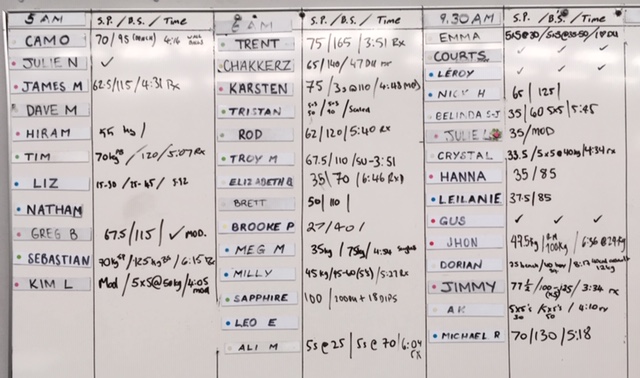 5 AM S.P. / B.S. / Time
CAMO 70/95 / 4:16
JULIE N ✓
JAMES M 62.5/115/4:31 Rx
DAVE M
HIRAM 55 kg /
TIM 70kg /120/5:07 Rx
LIZ 15-30 / 25-45 / 5:12
NATHAN
GREG B 67.5/115/ ✓ MOD.
SEBASTIAN 6:15
KIM L Mod / 5x5@50kg / 4:05 mod
AM S.P. / B.S. / Time
TRENT 75/165/3:51 Rx
CHAKKERZ 65/140/47
KARSTEN 75 /
TRISTAN / Scaled
ROD 62/120/5:40 Rx
TROY M 67.5/110/SU-3:51
ELIZABETH B 35/70 (6:46 Rx)
BRETT 50/110/
BROOKE P 27/40/
MEG M 35kg / 75kg /
MILLY 45kg / / 5:27 Rx
SAPPHIRE 100 / + 18 DIPS
LEO E
ALI M 5s @ 25 | 5s @ 70 | 6:04 Rx
9.30 AM S.P. / B.S. / Time
EMMA
COURTS ✓ ✓ ✓
LEROY ✓ ✓ ✓
NICK H 65 / 125 |
BELINDA S-J 35/60 5x5/5:45
JULIE 35/MOD
CRYSTAL 33.5 / 5x5@40kg / 4:34 rx
HANNA 35/85
LEILANIE 37.5/85
GUS ✓ ✓ ✓
JHON 47.5kg / 100kg / 6:36 @
DORIAN
JIMMY 77½ / 100-125 / 3:34 rx
AK 5x5's / 5x5's / 4:10 rx
30 50
MICHAEL R 70/130/5:18